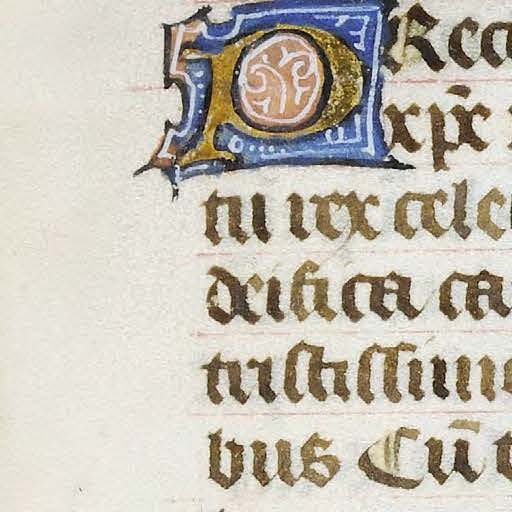 PRec
xp̄e
tu rex cele
deifica ca
tristissim
bus Cū t